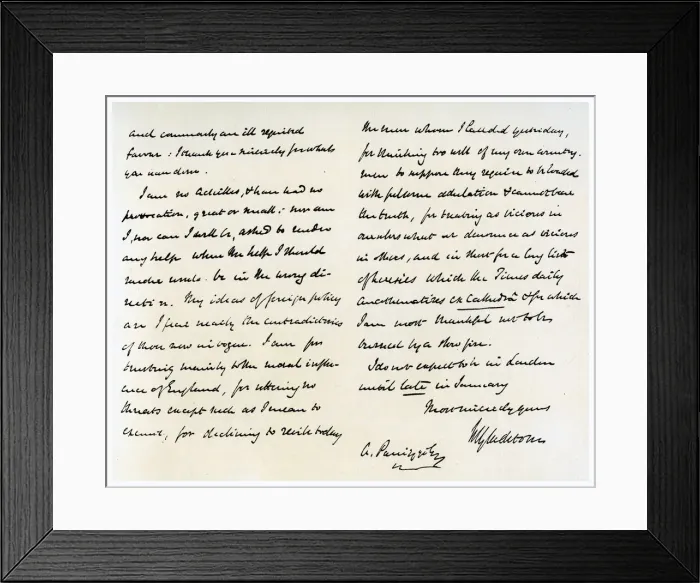 and commonly an ill requited
favour: I thank you sincerely for what
you have done.
I am no Achilles, & have had no
provocation, great or small: nor am
I, nor can I well be, asked to render
any help when the help I should
render would be in the wrong di-
rection. My ideas of foreign policy
are I fear nearly the contradictories
of those now in vogue. I am for
trusting mainly to the moral influ-
ence of England, for uttering no
threats except such as I mean to
execute, for declining to revile today
the men whom I lauded yesterday,
for thinking too well of my own country-
men to suppose they require to be loaded
with fulsome adulation & cannot bear
the truth, for treating as vicious in
ourselves what we denounce as vicious
in others, and in short for a long list
of heresies which the Times daily
anathematises ex Cathedrâ & for which
I am most thankful not to be
burned by a slow fire.
I do not expect to be in London
until late in January
Most sincerely yours
W E Gladstone
A. Panizzi Esq